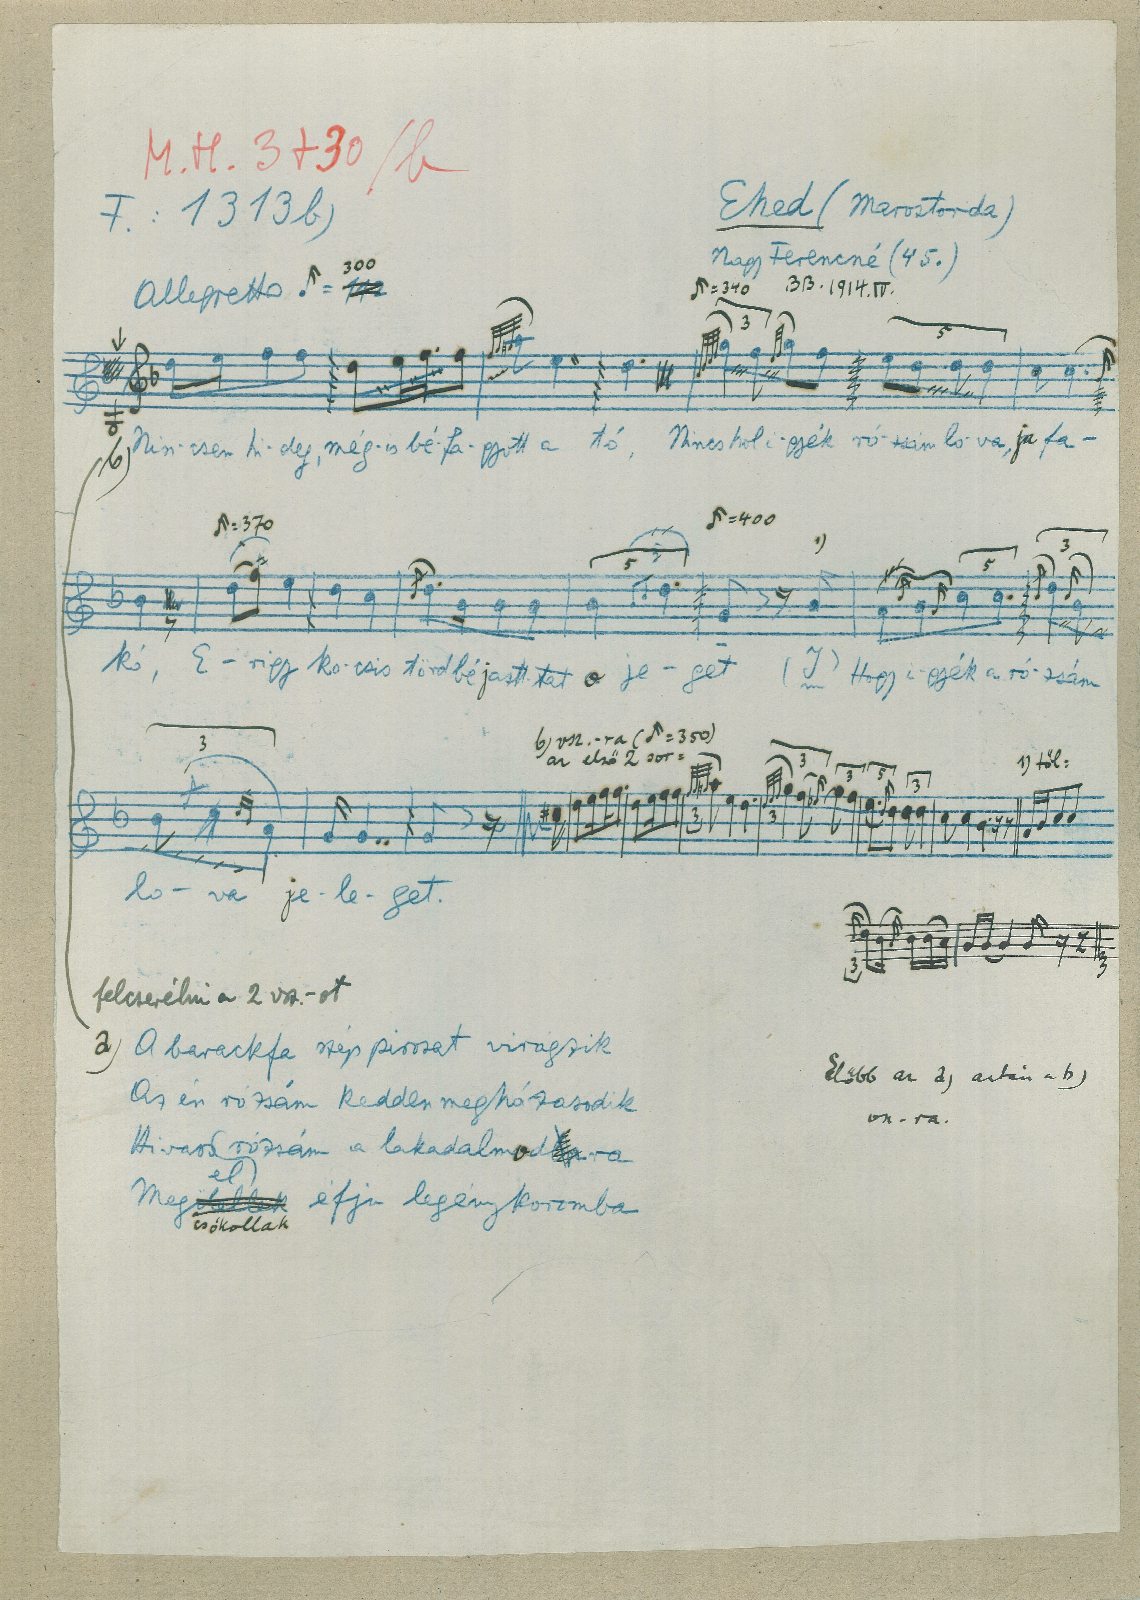 M.H. 3730/b
F.: 1313b)
Ehed (Marostorda)
Nagy Ferencné (45.)
BB. 1914.IV.
Allegretto ♪ = 300
♪ = 340
3
5
b) Nin-csen hi-deg, még-is bé-fa-gyott a tó, Nincs hol i-gyék ró-zsám lo-va, ja fa-
♪ = 370
♪ = 400
5
1)
5
3
kó, E-rigy ko-csis törd bé jastt-tat a je-get (J) Hogy i-gyék a ró-zsám
3
b) vsz.-ra (♪ = 350)
az első 2 sor:
1) től:
lo-va je-le-get.
felcserélni a 2 vsz.-ot
a) A barackfa szép pirosat virágzik
Az én rózsám kedden megházasodik
Hivasd rózsám a lakadalmodra
Előbb az a) aztán a b)
vsz-ra.
Meg
el
csókollak
éfju legény koromba